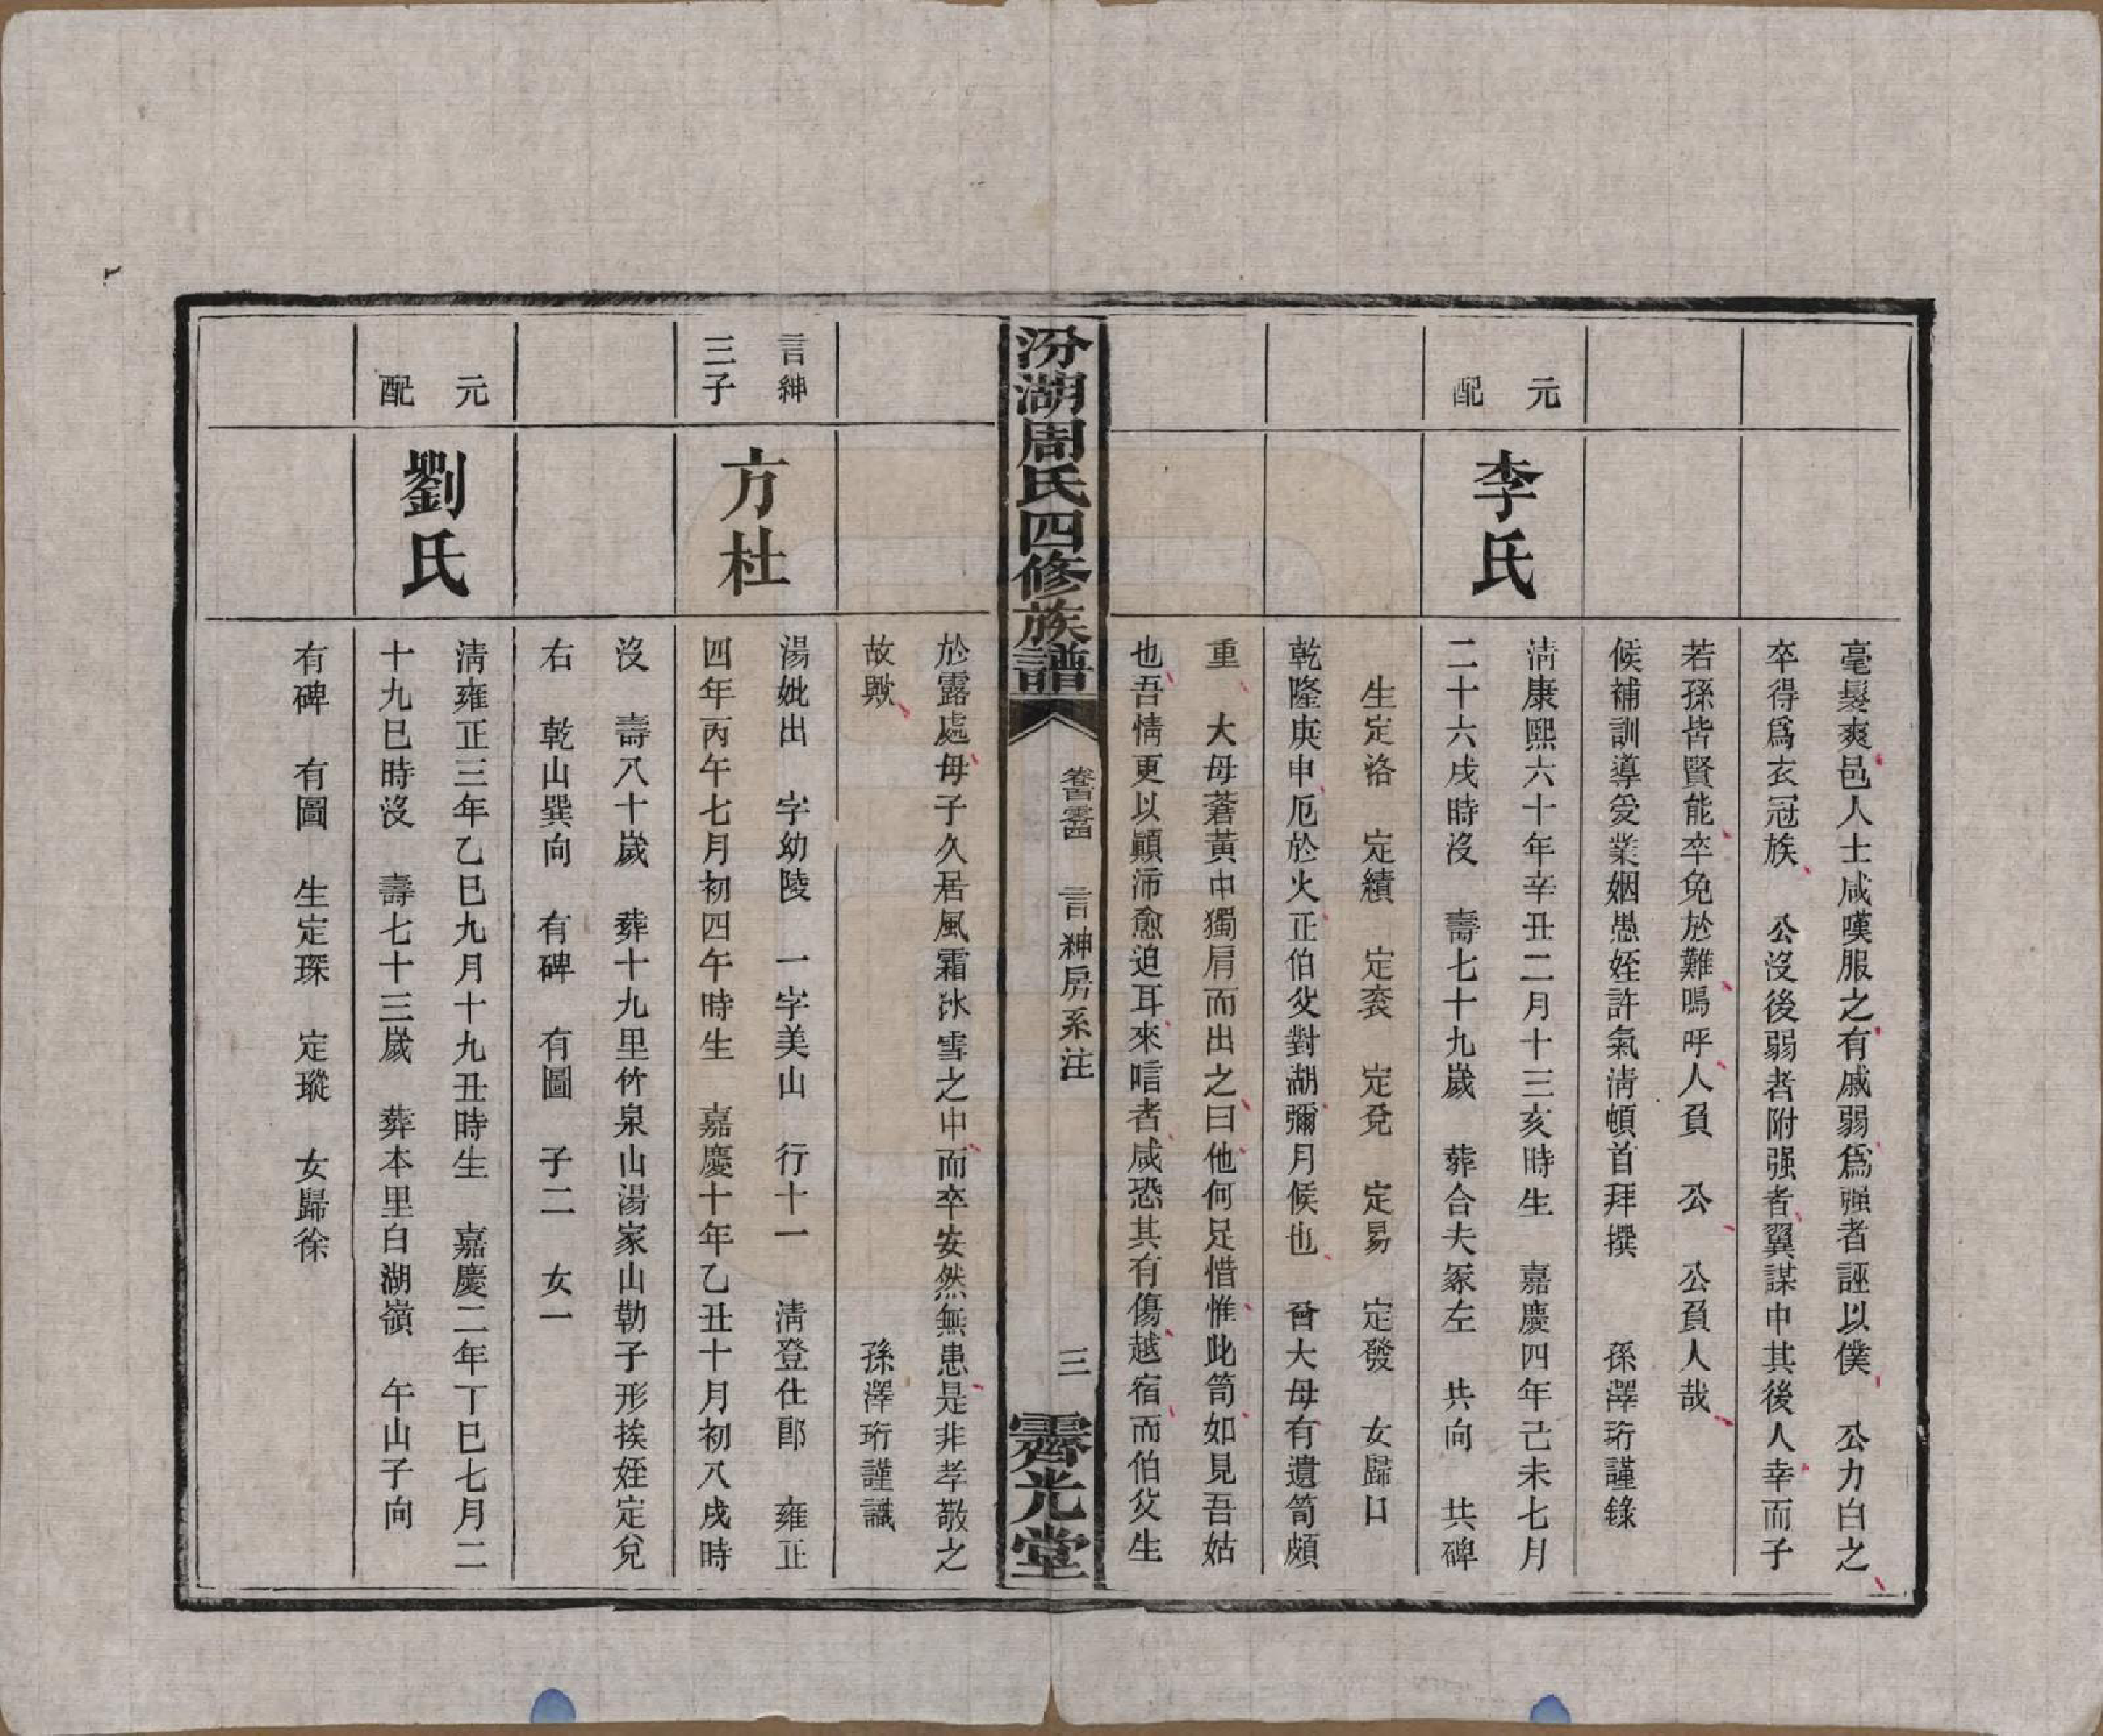 毫髮爽邑人士咸嘆服之有戚弱爲强者誣以僕　公力白之
卒得爲衣冠族　公沒後弱者附强者翼謀中其後人幸而子
若孫皆賢能卒免於難嗚呼人負　公　公負人哉
候補訓導受業姻愚姪許氣清頓首拜撰　孫澤珩謹錄
元配
李氏
清康熙六十年辛丑二月十三亥時生　嘉慶四年己未七月
二十六戌時沒　壽七十九歲　葬合夫冢左　共向　共碑
生定洛　定績　定袞　定兗　定易　定發　女歸口
乾隆庚申厄於火正伯父對湖彌月候也　曾大母有遺笥頗
重　大母蒼黃中獨肩而出之曰他何足惜惟此笥如見吾姑
也吾情更以顚沛愈迫耳來唁者咸恐其有傷越宿而伯父生
汾湖周氏四修族譜
言紳房系注
三
霽光堂
於露處母子久居風霜冰雪之中而卒安然無患是非孝敬之
故歟　孫澤珩謹識
言紳
三子
方杜
湯妣出　字幼陵　一字美山　行十一　清登仕郎　雍正
四年丙午七月初四午時生　嘉慶十年乙丑十月初八戌時
沒　壽八十歲　葬十九里竹泉山湯家山勒子形挨姪定兌
右　乾山巽向　有碑　有圖　子二　女一
元配
劉氏
清雍正三年乙巳九月十九丑時生　嘉慶二年丁巳七月二
十九巳時沒　壽七十三歲　葬本里白湖嶺　午山子向
有碑　有圖　生定琛　定瑽　女歸徐